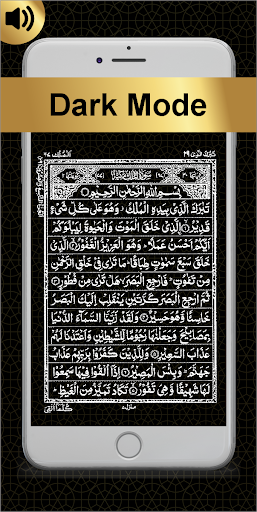 Dark Mode
تَبٰرَكَ الَّذِیْ ۲۹
الْمُلْك ۶۷
بِسْمِ اللهِ الرَّحْمٰنِ الرَّحِیْمِ
تَبٰرَكَ الَّذِیْ بِیَدِهِ الْمُلْكُ وَهُوَ عَلٰی كُلِّ شَیْءٍ
قَدِیْرُ الَّذِیْ خَلَقَ الْمَوْتَ وَالْحَیٰوةَ لِیَبْلُوَكُمْ
اَیُّكُمْ اَحْسَنُ عَمَلًا وَهُوَ الْعَزِیْزُ الْغَفُوْرُ الَّذِیْ
خَلَقَ سَبْعَ سَمٰوٰتٍ طِبَاقًا مَا تَرٰی فِیْ خَلْقِ الرَّحْمٰنِ
مِنْ تَفٰوُتٍ فَارْجِعِ الْبَصَرَ هَلْ تَرٰی مِنْ فُطُوْرٍ
ثُمَّ ارْجِعِ الْبَصَرَ كَرَّتَیْنِ یَنْقَلِبْ اِلَیْكَ الْبَصَرُ
خَاسِئًا وَّهُوَ حَسِیْرٌ وَلَقَدْ زَیَّنَّا السَّمَآءَ الدُّنْیَا
بِمَصَابِیْحَ وَجَعَلْنٰهَا رُجُوْمًا لِّلشَّیٰطِیْنِ وَاَعْتَدْنَا لَهُمْ
عَذَابَ السَّعِیْرِ وَلِلَّذِیْنَ كَفَرُوْا بِرَبِّهِمْ عَذَابُ
جَهَنَّمَ وَبِئْسَ الْمَصِیْرُ اِذَآ اُلْقُوْا فِیْهَا سَمِعُوْا
لَهَا شَهِیْقًا وَّهِیَ تَفُوْرُ تَكَادُ تَمَیَّزُ مِنَ الْغَیْظِ
كُلَّمَآ اُلْقِیَ